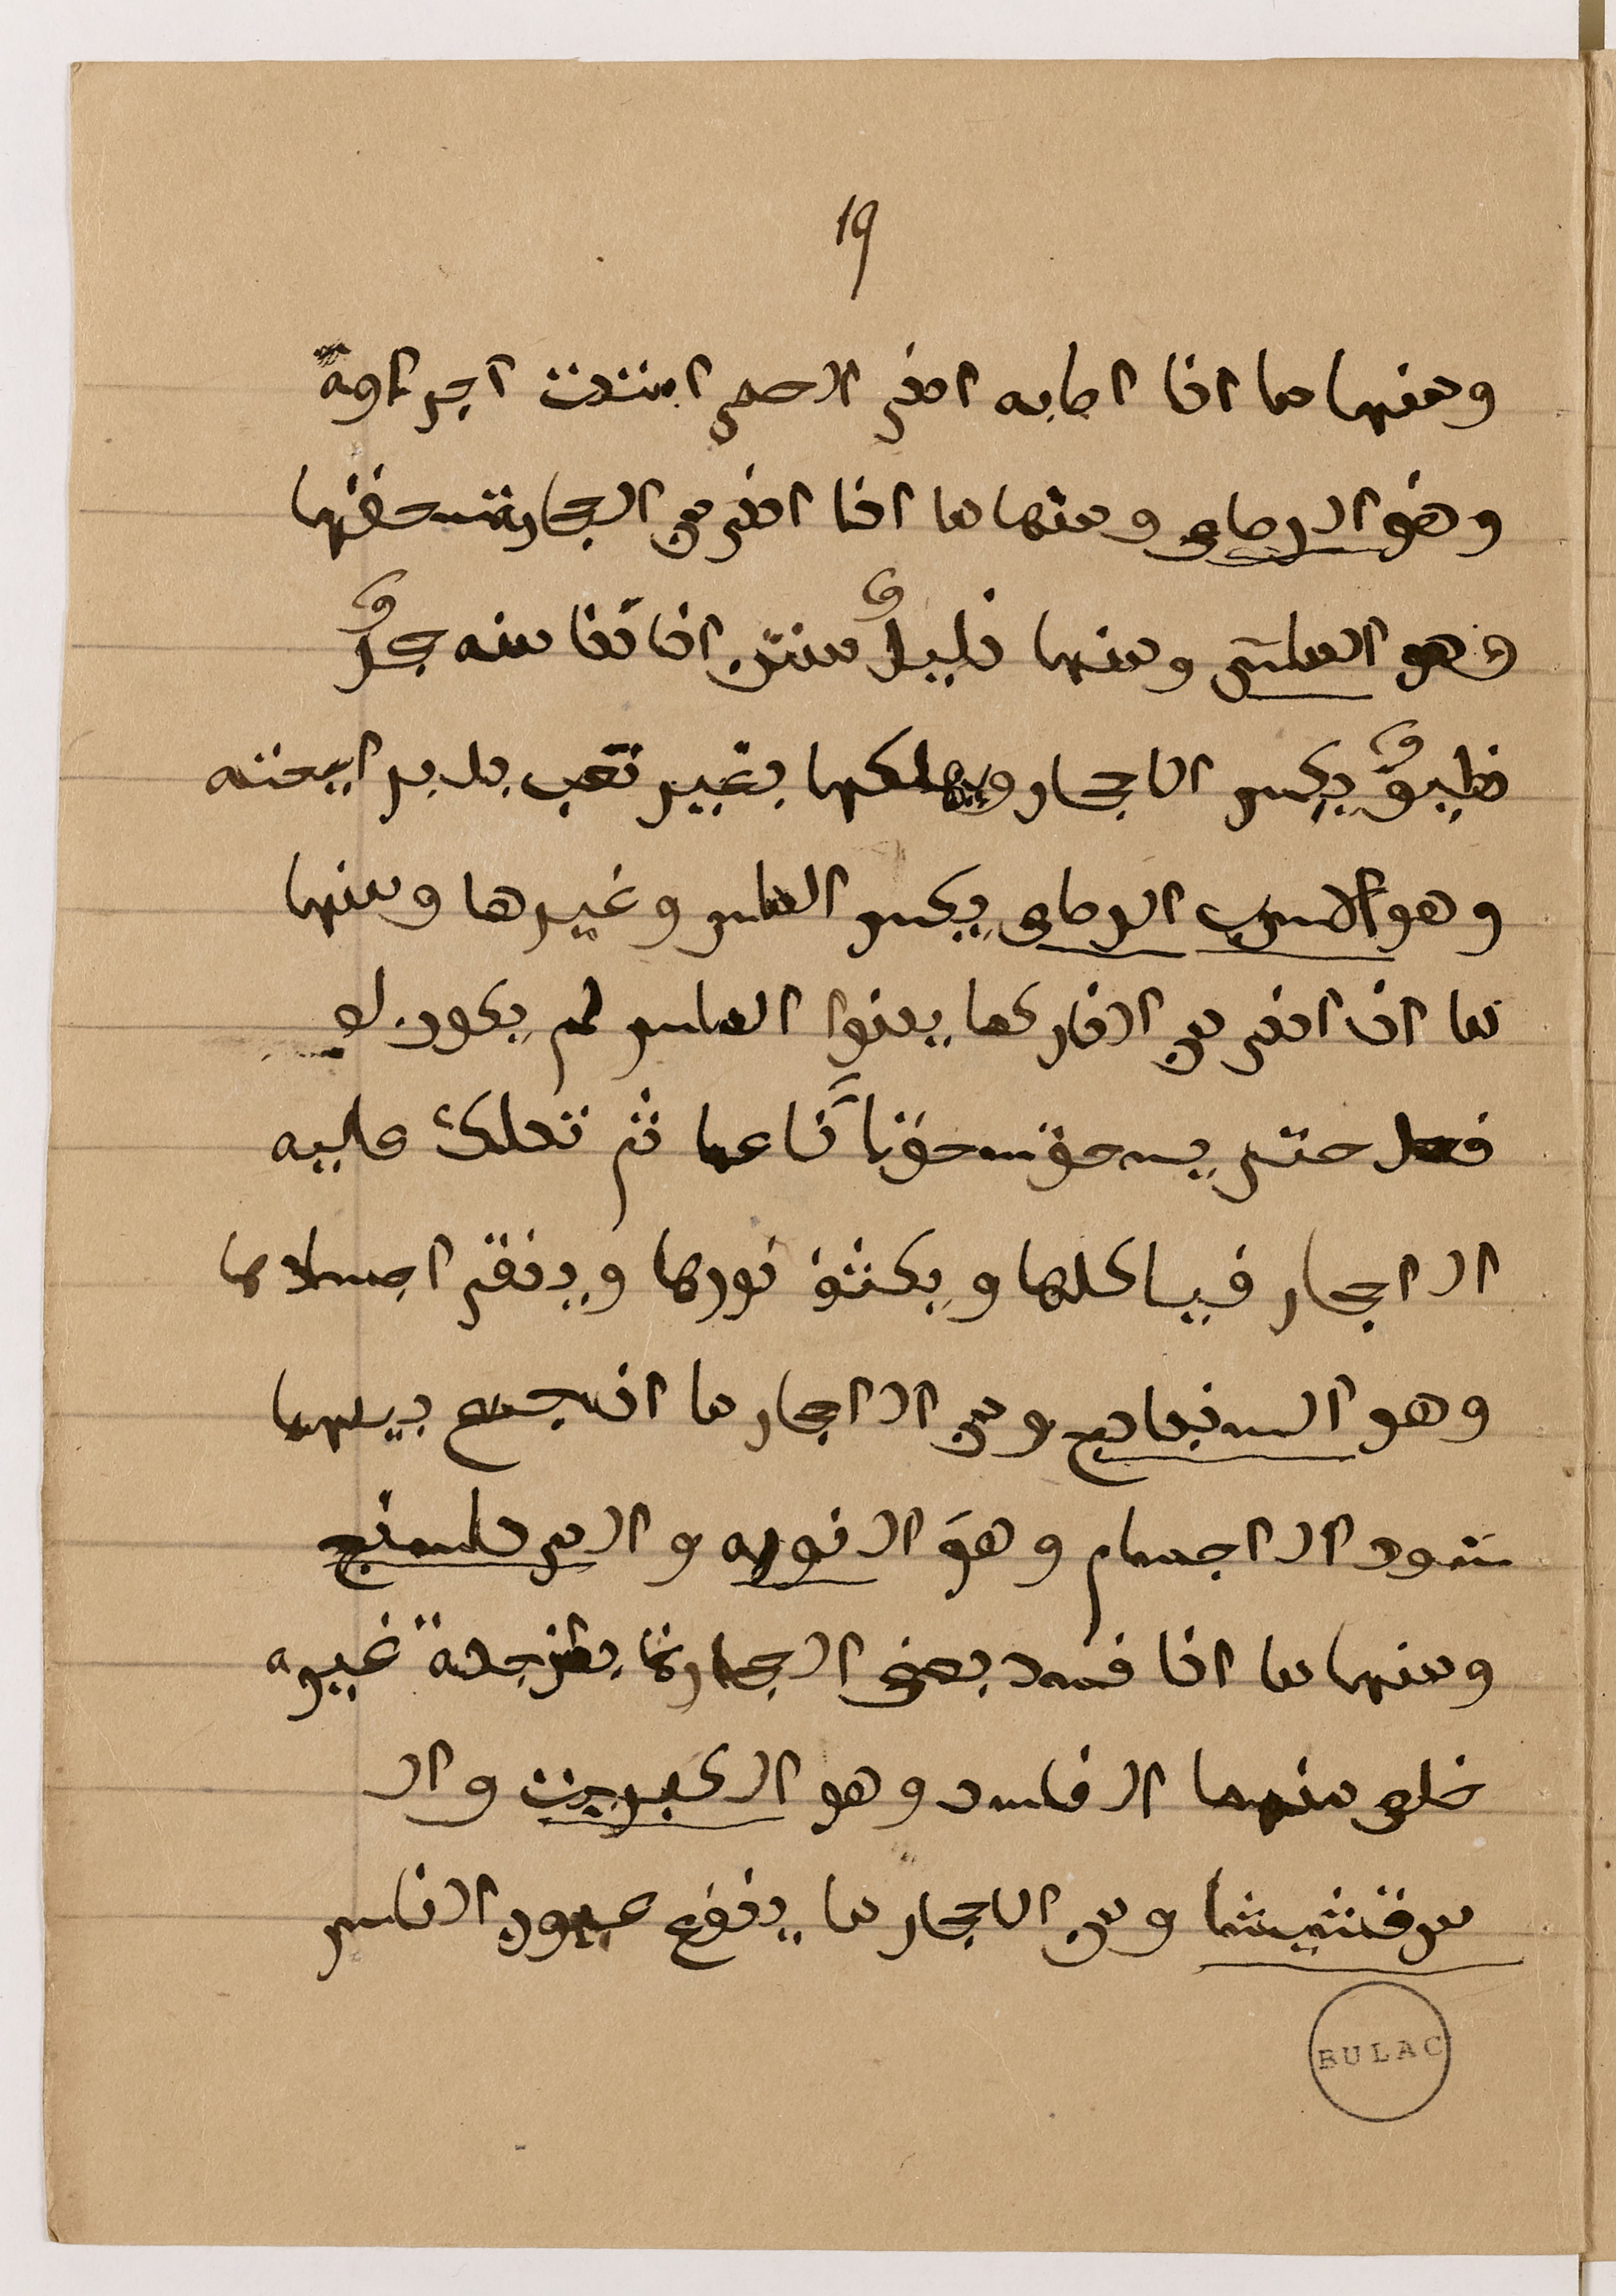 19
ومنها ما اذا اصابه ادنى الحمى انتنت اجزاوه
وهو الرصاص ومنها ما اذا ادنى من الحجارة سحقها
وهو الماس ومنها قليل منتن اذا دنا منه حجر
ظيق يكسر الاحجار ويهلكها بغير تعب بل برايحته
وهو الاسرب الرصاص يكسر الماس وغيرها ومنها
ما ان ادنى من النار كما يدنوا الماس لم يكود لو
فعل حتى يسحق سحقا ناعما ثم تحك عليه
الاحجار فياكلها ويكشف نورها وينقى اجسادها
وهو السنباذج ومن الاحجار ما ان جمع بينهما
سود الاجسام وهو النوره والمرداسنج
ومنها ما اذا فسد بعض الحجارة غيره
خلص منهما الفاسد وهو الكبريت وال
مرقشيشا ومن الاحجار ما ينفع عيون الناس
BULAC